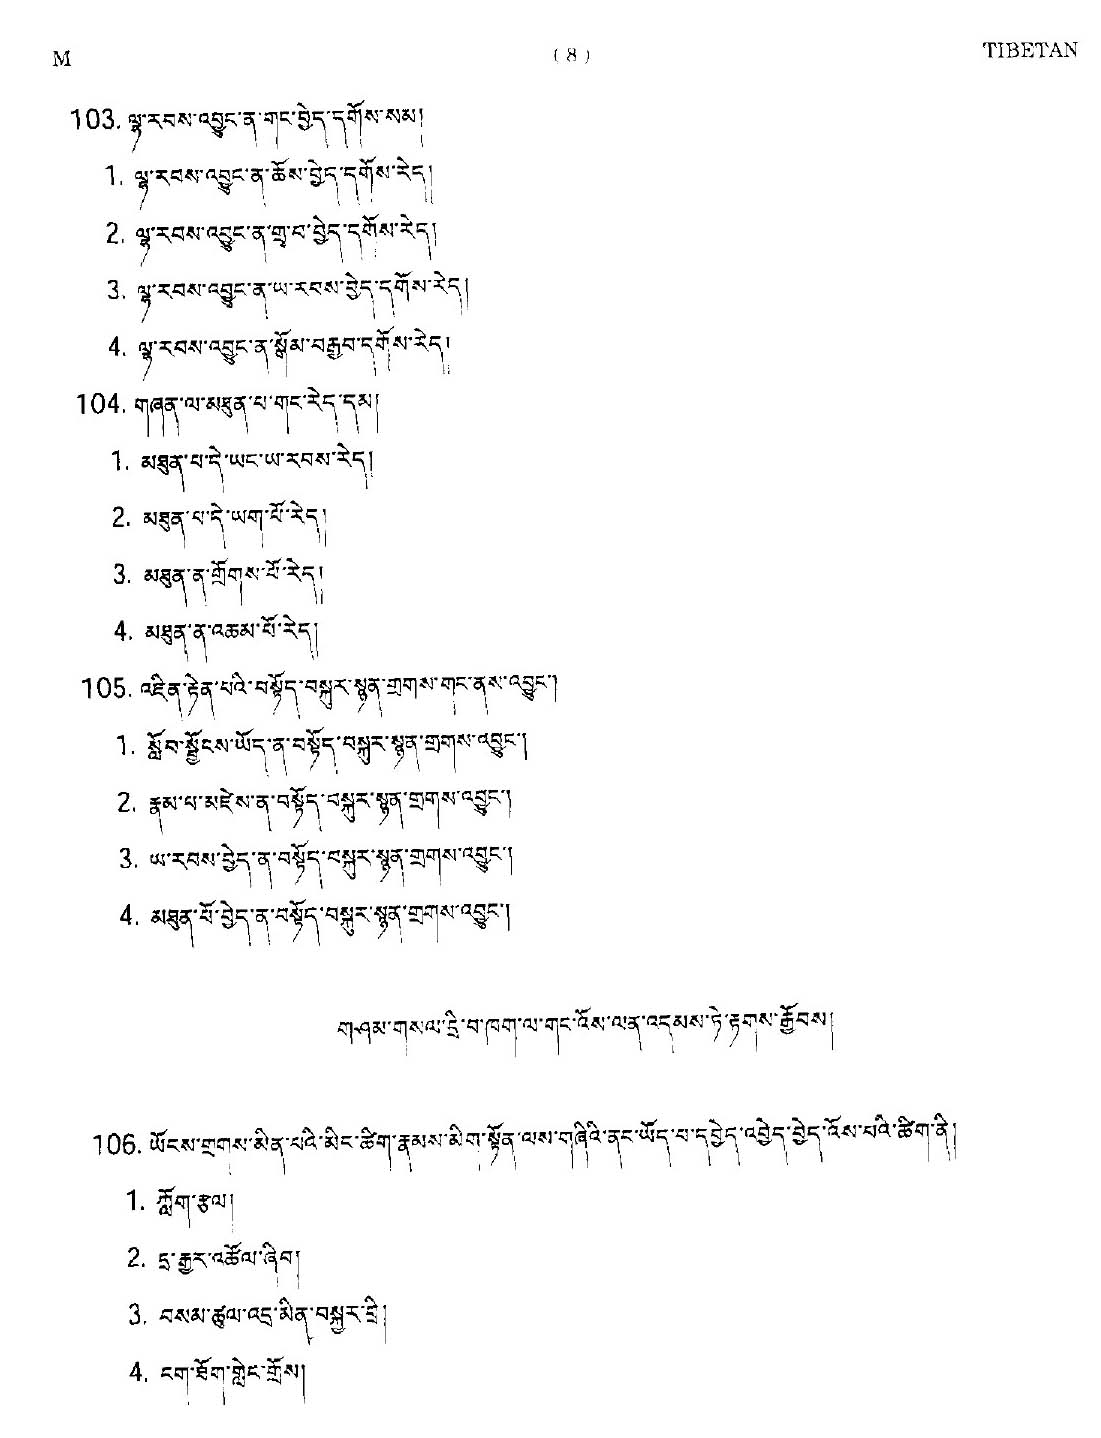 M
( 8 )
TIBETAN
103. ལྷ་རབས་འབྱུང་ན་གང་བྱེད་དགོས་སམ།
1. ལྷ་རབས་འབྱུང་ན་ཆོས་བྱེད་དགོས་རེད།
2. ལྷ་རབས་འབྱུང་ན་གྲྭ་པ་བྱེད་དགོས་རེད།
3. ལྷ་རབས་འབྱུང་ན་ཡ་རབས་བྱེད་དགོས་རེད།
4. ལྷ་རབས་འབྱུང་ན་སྒོམ་བརྒྱབ་དགོས་རེད།
104. གཞན་ལ་མཐུན་པ་གང་རེད་དམ།
1. མཐུན་པ་དེ་ཡང་ཡ་རབས་རེད།
2. མཐུན་པ་དེ་ཡག་པོ་རེད།
3. མཐུན་ན་གྲོགས་པོ་རེད།
4. མཐུན་ན་འཆམ་པོ་རེད།
105. འཇིན་རྟེན་པའི་བསྟོད་བསྐུར་སྙན་གྲགས་གང་ནས་འབྱུང་།
1. སློབ་སྦྱོངས་ཡོད་ན་བསྟོད་བསྐུར་སྙན་གྲགས་འབྱུང་།
2. རྣམ་པ་མཛེས་ན་བསྟོད་བསྐུར་སྙན་གྲགས་འབྱུང་།
3. ཡ་རབས་བྱེད་ན་བསྟོད་བསྐུར་སྙན་གྲགས་འབྱུང་།
4. མཐུན་པོ་བྱེད་ན་བསྟོད་བསྐུར་སྙན་གྲགས་འབྱུང་།
གཤམ་གསལ་དྲི་བ་ཁག་ལ་གང་འོས་ལན་འདམས་ཏེ་རྟགས་རྒྱོབས།
106. ཡོངས་གྲགས་མིན་པའི་མིང་ཚིག་རྣམས་མིག་སྟོན་ལས་གཞིའི་ནང་ཡོད་པ་དབྱེད་འབྱེད་བྱེད་འོས་པའི་ཚིག་ནི།
1. ཀློག་རྩལ།
2. དྲ་རྒྱར་འཚོལ་ཞིབ།
3. བསམ་ཚུལ་འདྲ་མིན་བསྐྱར་དྲི།
4. ངག་ཐོག་གླེང་གྲོས།